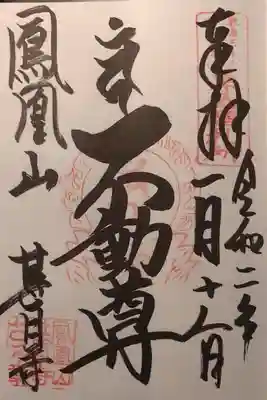 奉拝
令和二年
一月十八日
不動尊
鳳凰山
甚目寺